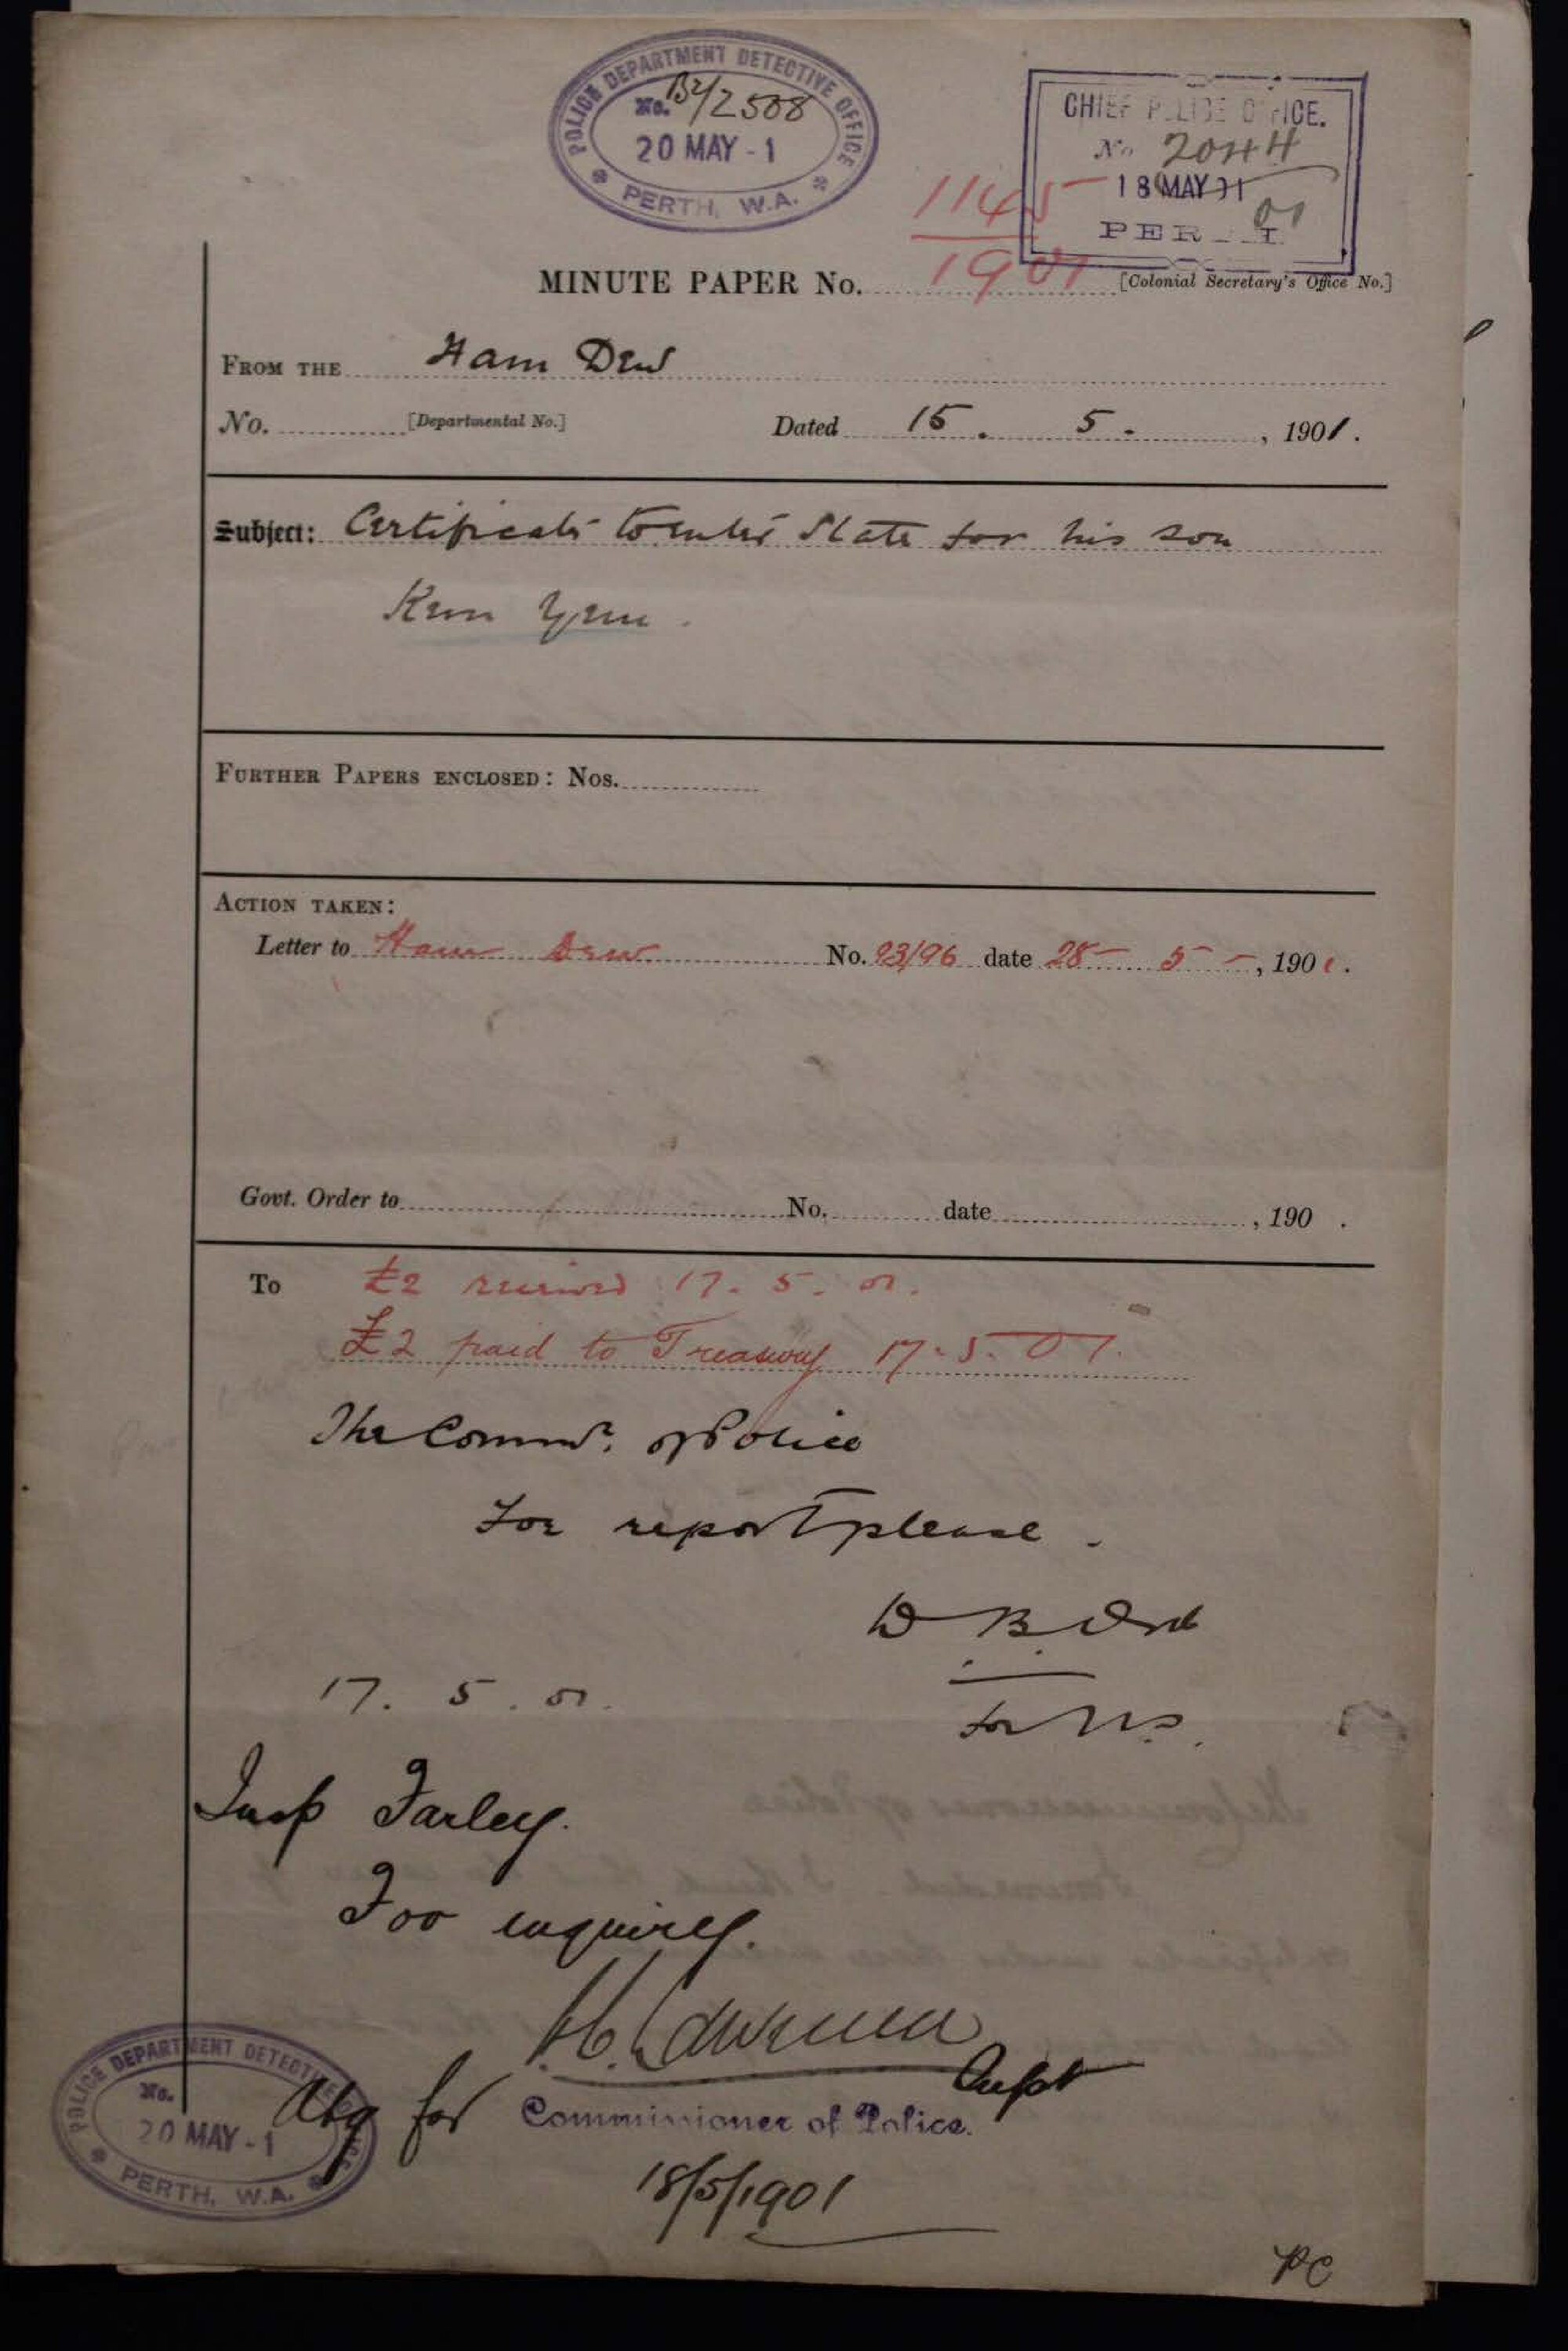 POLICE DEPARTMENT DETECTIVE OFFICE
No. B4/2508
20 MAY - 1
PERTH, W.A.
CHIEF POLICE OFFICE.
No 2044
18 MAY 01
01
PERTH
1145
1901
MINUTE PAPER No. [Colonial Secretary's Office No.]
FROM THE Ham Dew
No. [Departmental No.] Dated 15. 5. , 1901.
Subject: Certificate to enter State for his son
Kum Yum.
FURTHER PAPERS ENCLOSED: Nos.
ACTION TAKEN:
Letter to Ham Dew No. 93/96 date 28 - 5 - , 1901.
Govt. Order to No. date , 190 .
To £2 received 17. 5. 01.
£2 paid to Treasury 17. 5. 01.
The Commr. of Police
For report please.
17. 5. 01.
for U.S.
Insp Farley.
For inquiry.
Supt
Actg for Commissioner of Police.
18/5/1901
POLICE DEPARTMENT DETECTIVE OFFICE
No.
20 MAY - 1
PERTH, W.A.
PC